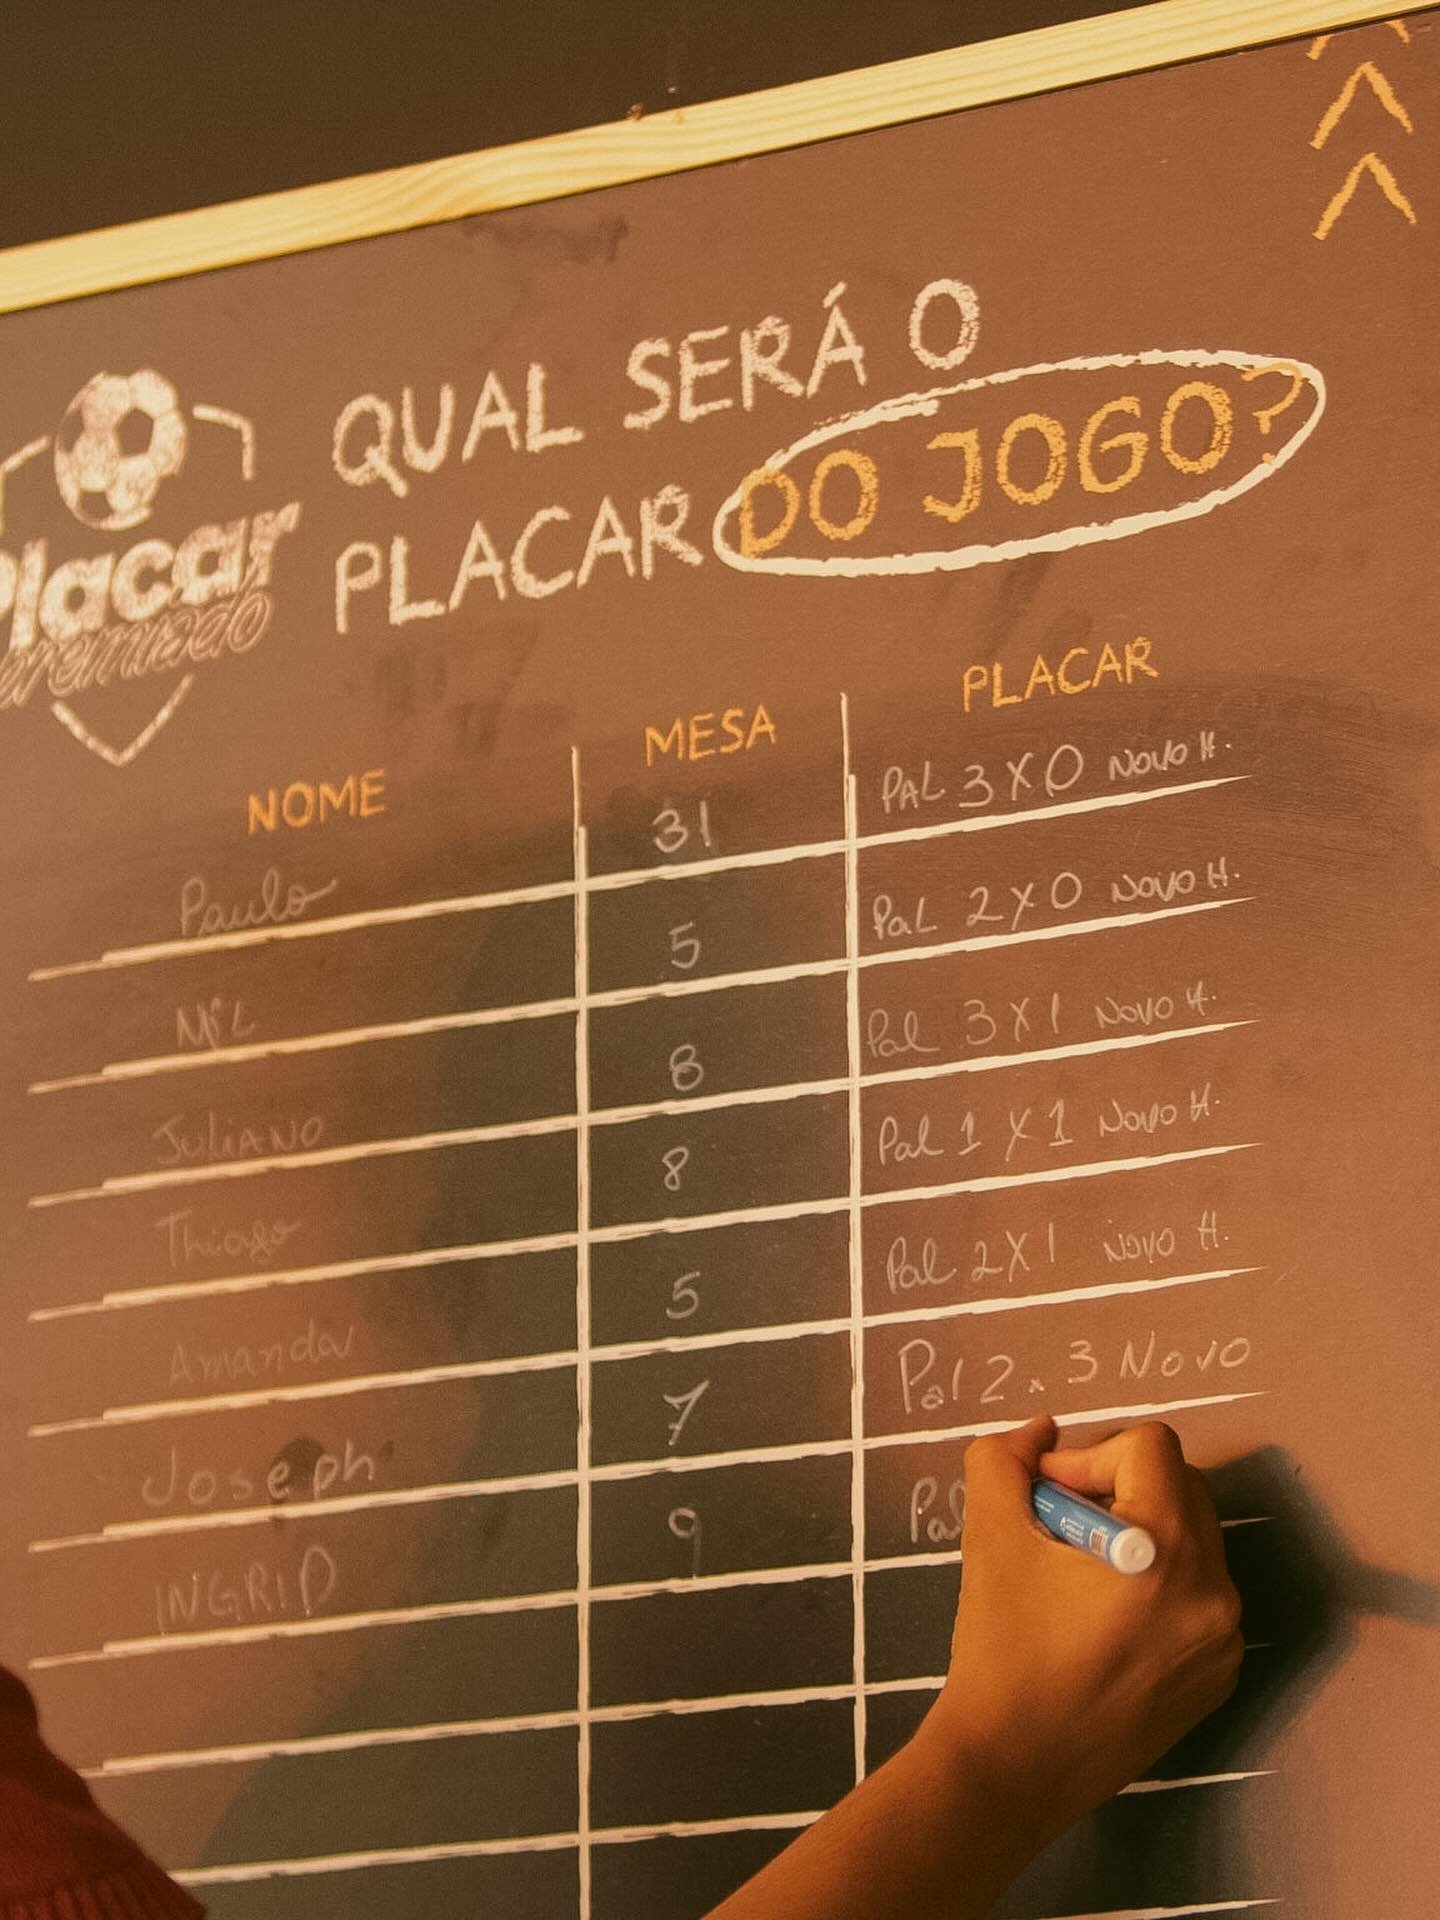 QUAL SERÁ O
PLACAR DO JOGO?
Placar
premiado
NOME MESA PLACAR
Paulo 31 PAL 3 X 0 NOVO H.
MiL 5 PaL 2 X 0 NOVO H.
JULIANO 8 Pal 3 X 1 NOVO H.
Thiago 8 Pal 1 X 1 NOVO H.
Amanda 5 Pal 2 X 1 NOVO H.
Joseph 7 Pal 2 x 3 Novo
INGRID 9 Pal